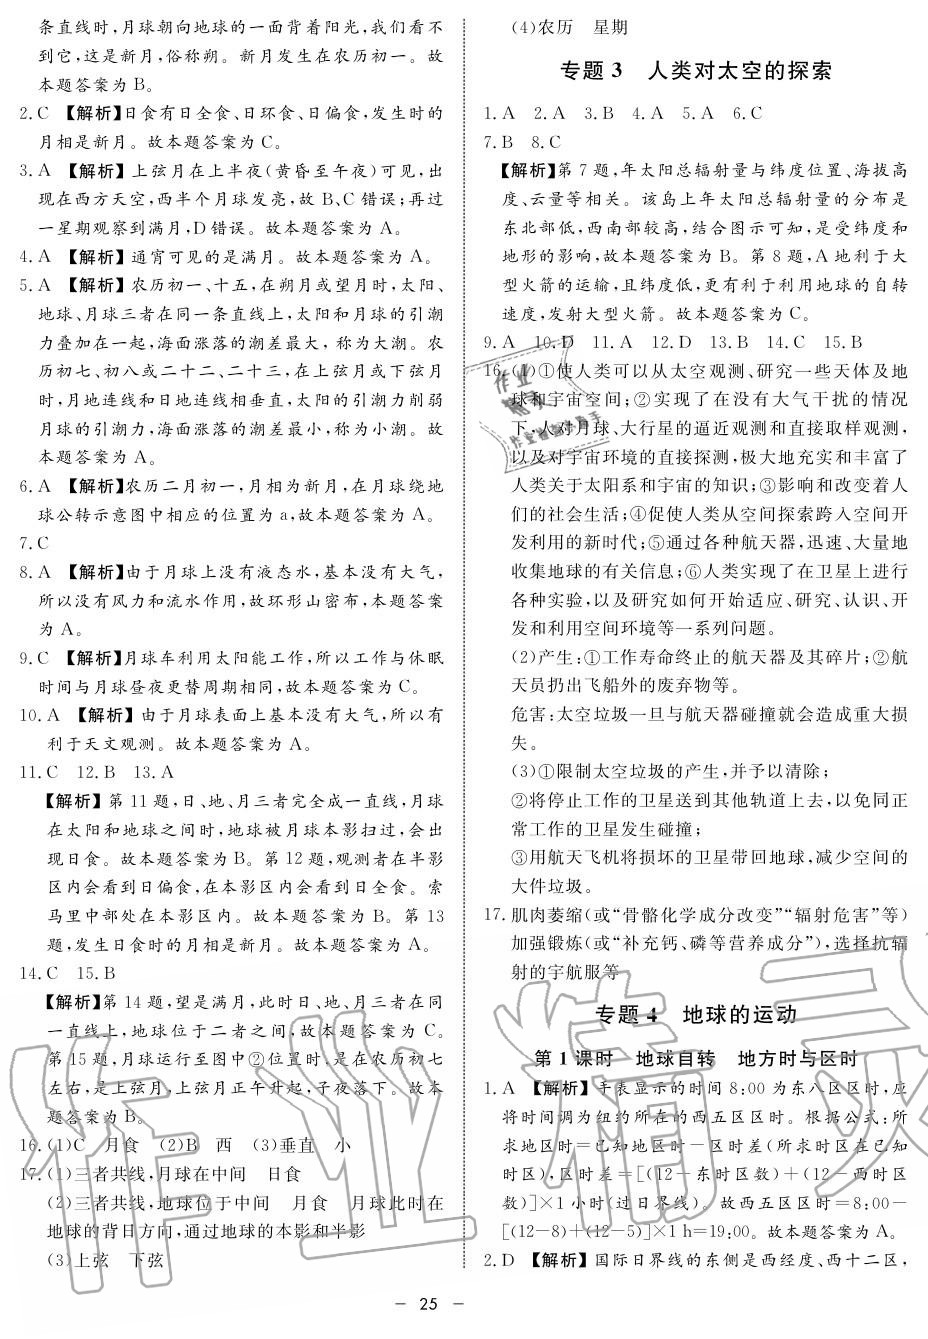 条直线时,月球朝向地球的一面背着阳光,我们看不
到它,这是新月,俗称朔。新月发生在农历初一。故
本题答案为 B。
2. C 【解析】日食有日全食、日环食、日偏食,发生时的
月相是新月。故本题答案为 C。
3. A 【解析】上弦月在上半夜(黄昏至午夜)可见,出
现在西方天空,西半个月球发亮,故 B、C 错误;再过
一星期观察到满月,D 错误。故本题答案为 A。
4. A 【解析】通宵可见的是满月。故本题答案为 A。
5. A 【解析】农历初一、十五,在朔月或望月时,太阳、
地球、月球三者在同一条直线上,太阳和月球的引潮
力叠加在一起,海面涨落的潮差最大,称为大潮。农
历初七、初八或二十二、二十三,在上弦月或下弦月
时,月地连线和日地连线相垂直,太阳的引潮力削弱
月球的引潮力,海面涨落的潮差最小,称为小潮。故
本题答案为 A。
6. A 【解析】农历二月初一,月相为新月,在月球绕地
球公转示意图中相应的位置为 a,故本题答案为 A。
7. C
8. A 【解析】由于月球上没有液态水,基本没有大气,
所以没有风力和流水作用,故环形山密布,本题答案
为 A。
9. C 【解析】月球车利用太阳能工作,所以工作与休眠
时间与月球昼夜更替周期相同,故本题答案为 C。
10. A 【解析】由于月球表面上基本没有大气,所以有
利于天文观测。故本题答案为 A。
11. C 12. B 13. A
【解析】第 11 题,日、地、月三者完全成一直线,月球
在太阳和地球之间时,地球被月球本影扫过,会出
现日食。故本题答案为 B。第 12 题,观测者在半影
区内会看到日偏食,在本影区内会看到日全食。索
马里中部处在本影区内。故本题答案为 B。第 13
题,发生日食时的月相是新月。故本题答案为 A。
14. C 15. B
【解析】第 14 题,望是满月,此时日、地、月三者在同
一直线上,地球位于二者之间,故本题答案为 C。
第 15 题,月球运行至图中②位置时,是在农历初七
左右,是上弦月,上弦月正午升起,子夜落下。故本
题答案为 B。
16. (1)C 月食 (2)B 西 (3)垂直 小
17. (1)三者共线,月球在中间 日食
(2)三者共线,地球位于中间 月食 月球此时在
地球的背日方向,通过地球的本影和半影
(3)上弦 下弦
(4)农历 星期
专题 3 人类对太空的探索
1. A 2. A 3. B 4. A 5. A 6. C
7. B 8. C
【解析】第 7 题,年太阳总辐射量与纬度位置、海拔高
度、云量等相关。该岛上年太阳总辐射量的分布是
东北部低,西南部较高,结合图示可知,是受纬度和
地形的影响,故本题答案为 B。第 8 题,A 地利于大
型火箭的运输,且纬度低,更有利于利用地球的自转
速度,发射大型火箭。故本题答案为 C。
9. A 10. D 11. A 12. D 13. B 14. C 15. B
16. (1)①使人类可以从太空观测、研究一些天体及地
球和宇宙空间;②实现了在没有大气干扰的情况
下,人对月球、大行星的逼近观测和直接取样观测,
以及对宇宙环境的直接探测,极大地充实和丰富了
人类关于太阳系和宇宙的知识;③影响和改变着人
们的社会生活;④促使人类从空间探索跨入空间开
发利用的新时代;⑤通过各种航天器,迅速、大量地
收集地球的有关信息;⑥人类实现了在卫星上进行
各种实验,以及研究如何开始适应、研究、认识、开
发和利用空间环境等一系列问题。
(2)产生:①工作寿命终止的航天器及其碎片;②航
天员扔出飞船外的废弃物等。
危害:太空垃圾一旦与航天器碰撞就会造成重大损
失。
(3)①限制太空垃圾的产生,并予以清除;
②将停止工作的卫星送到其他轨道上去,以免同正
常工作的卫星发生碰撞;
③用航天飞机将损坏的卫星带回地球,减少空间的
大件垃圾。
17. 肌肉萎缩(或“骨骼化学成分改变”“辐射危害”等)
加强锻炼(或“补充钙、磷等营养成分”),选择抗辐
射的宇航服等
专题 4 地球的运动
第 1 课时 地球自转 地方时与区时
1. A 【解析】手表显示的时间 8:00 为东八区区时,应
将时间调为纽约所在的西五区区时。根据公式:所
求地区时=已知地区时-区时差(所求时区在已知
时区),区时差=[(12-东时区数)+(12-西时区
数)]×1 小时(过日界线)。故西五区区时=8:00-
[(12-8)+(12-5)]×1 h=19:00。故本题答案为 A。
2. D 【解析】国际日界线的东侧是西经度、西十二区,
— 25 —
作业精灵